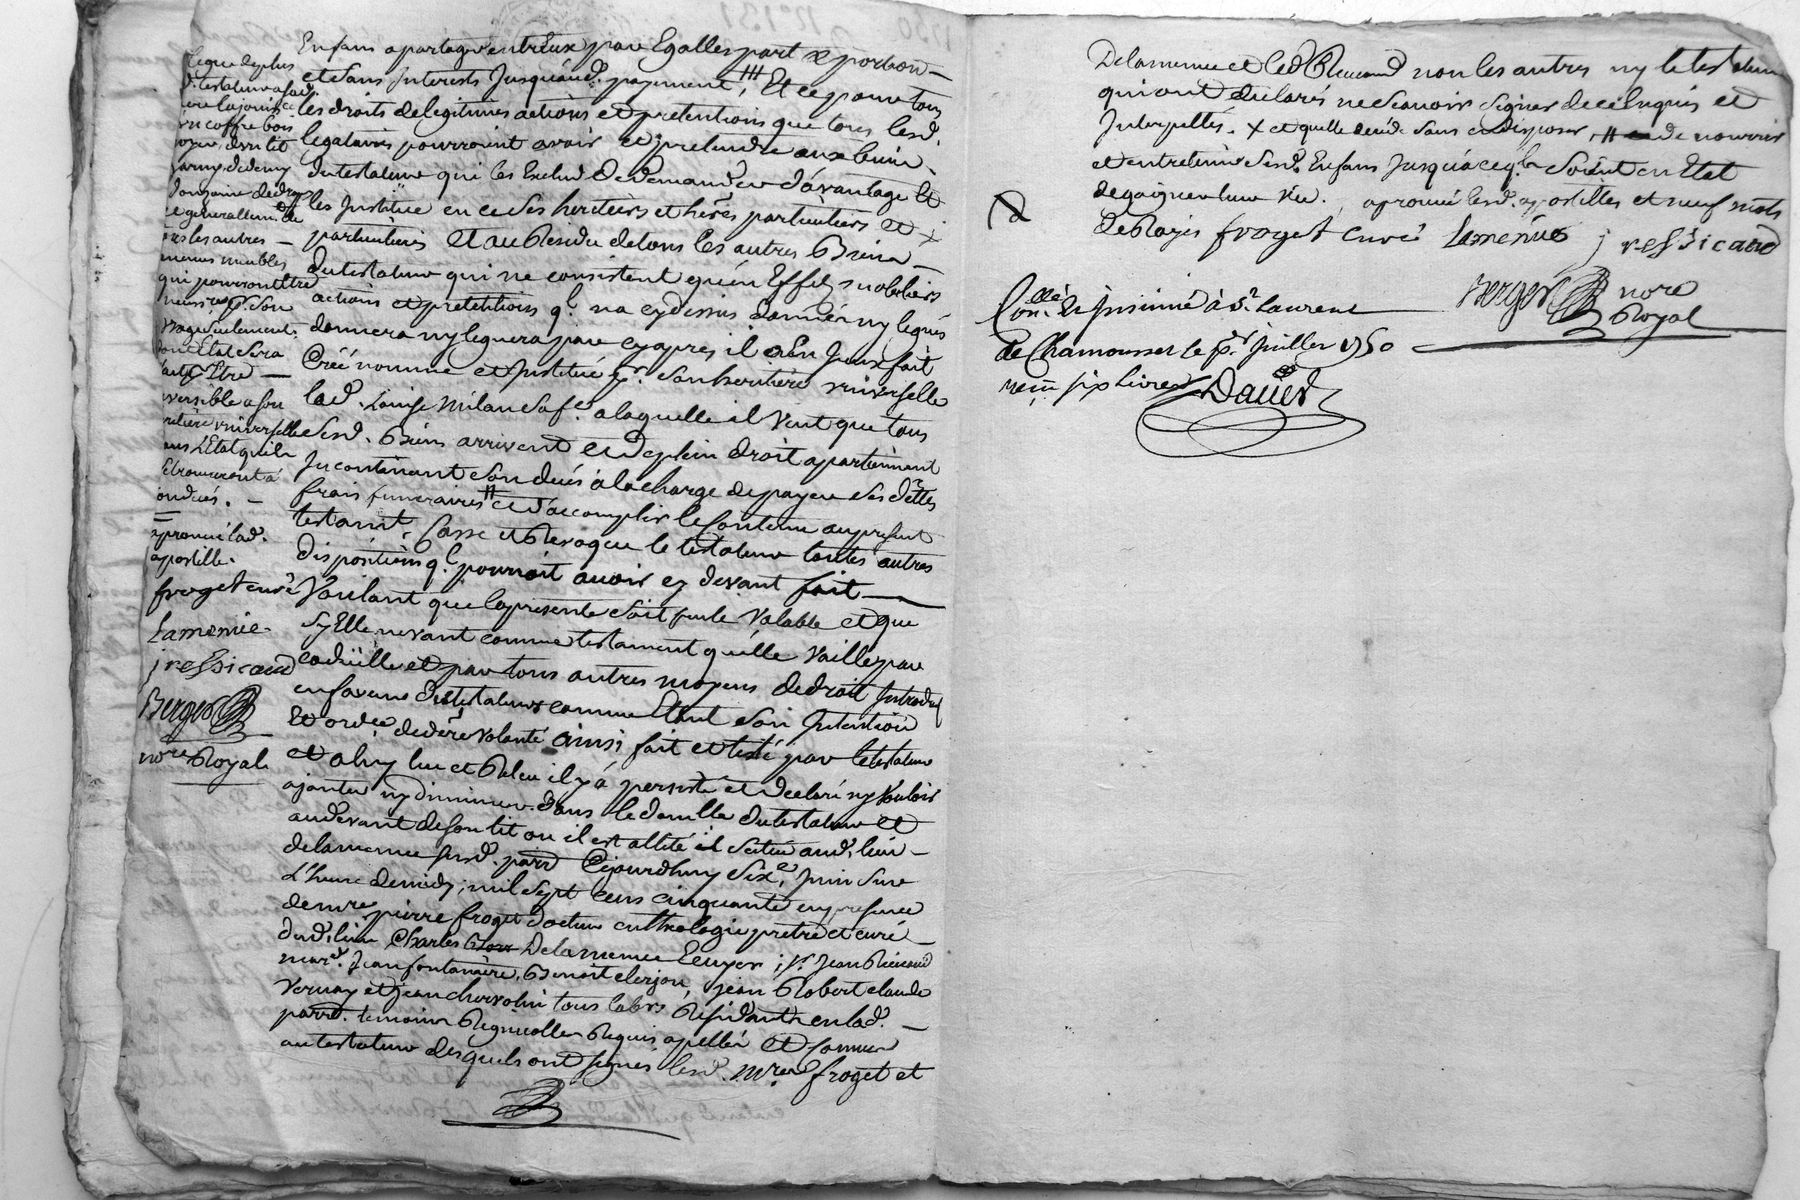 Enfans apartager entreux par Egalles part & portion
et sans Interests Jusquaud. payment, ### Et ce pour tous
les droits delegitimes actions et pretentions que tous lesd.
legataires pourroient avoir et pretendre aux biens
dutestateur qui les Exclud de demander d'avantage Et
les Institüe en ce ses heritiers et hers. particuliers et x
particulieres Et au Residu detous les autres Biens
dutestateur qui ne consistent qu'en Effets mobiliers
actions et pretentions q.l na cydessus donnés ny legués
donnera ny leguera par cyapres il a En Jceux fait
Créé nommé et Institué pr. son heritiere universelle
lad. Louise milan sa fe. a laquelle il veut que tous
sesd. Biens arrivent et de plein droit apartiennent
Incontinant son decés à la charge de payer ses dettes
frais funeraires # et d'accomplir le Contenu au present
testamt. Casse et Revoque le testateur toutes autres
dispositions q.l pourroit avoir cy devant fait
Voulant que la presente soit seule Valable et que
sy Elle ne vaut comme testament qu'elle Vaille par
codicille et par tous autres moyens de droit Introduit
en faveur des testateurs comme Etant son Intention
Et ordce. de dere. volonté ainsi fait et testé par letestateur
et aluy lu et Relu il y a persisté et declaré ny vouloir
ajouter ny diminuer. Dans le domille dutestateur et
au devant de son lit ou il est allité il scitué aud. lieu
delamenue susd. parr Cejourdhuy six.e Juin sur
L'heure de midy; mil sept cens cinquante en presence
de mre pierre froget docteur en theologie pretre et curé
dud. lieu Charles Delamenue Ecuyer; sr. Jean Ricaud
mard. Jean fontanière, Benoit clerjon, jean Robert claude
Vernay et jean chervolin tous labrs Residants en lad.
parr. temoins Regnicolles Requis apellés Et connus
au testateur desquels ont signés lesd. mres froget et
Legue de plus
un coffre bois
generallemt. de
les autres
menus meubles
qui pourront être
usage seulement.
dont Etat sera
Etre
reversible a son
heritiere universelle
dans L'Etat qu'ils
se trouveront à
son decés.
aprouvé lad.
apostille.
froget curé
Lamenüe
j ressicaud
Berger
nore Royal
Delamenue et led Ricaud non les autres ny le testateur
qui ont declarés ne Scavoir Signer de ce Enquis et
Interpellés. x et qu'elle decede sans en disposer, # de nourrir
et entretenir sesd. Enfans Jusqu'a ce q.ls soient en Etat
de gaigner leur vie. aprouvé lesd. apostilles et neuf mots
de Rayés froget curé lamenüe j ressicaud
Berger nore
Royal
Conllé et Insinué à St. Laurent
de Chamousset le pr. Juillet 1750
six livres Daviet